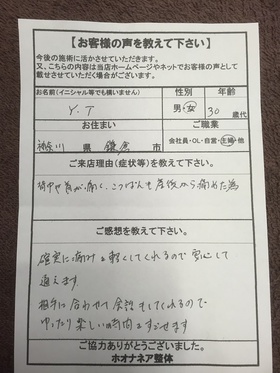 【お客様の声を教えて下さい】
今後の施術に活かさせていただきます。
又、こちらの内容は当店ホームページやネットでお客様の声として
載せさせていただく場合がございます。
お名前(イニシャル等でも構いません) 性別 年齢
Y.T 男・女 30歳代
お住まい ご職業
神奈川県 鎌倉市 会社員・OL・自営・主婦・他
ご来店理由(症状等)を教えて下さい。
背中や首が痛く、こつばんも産後から痛めた為
ご感想を教えて下さい。
確実に痛みを軽くしてくれるので安心して
通えます。
相手に合わせて会話もしてくれるので
ゆったり楽しい時間をすごせます
ご協力ありがとうございました。
ホオナネア整体